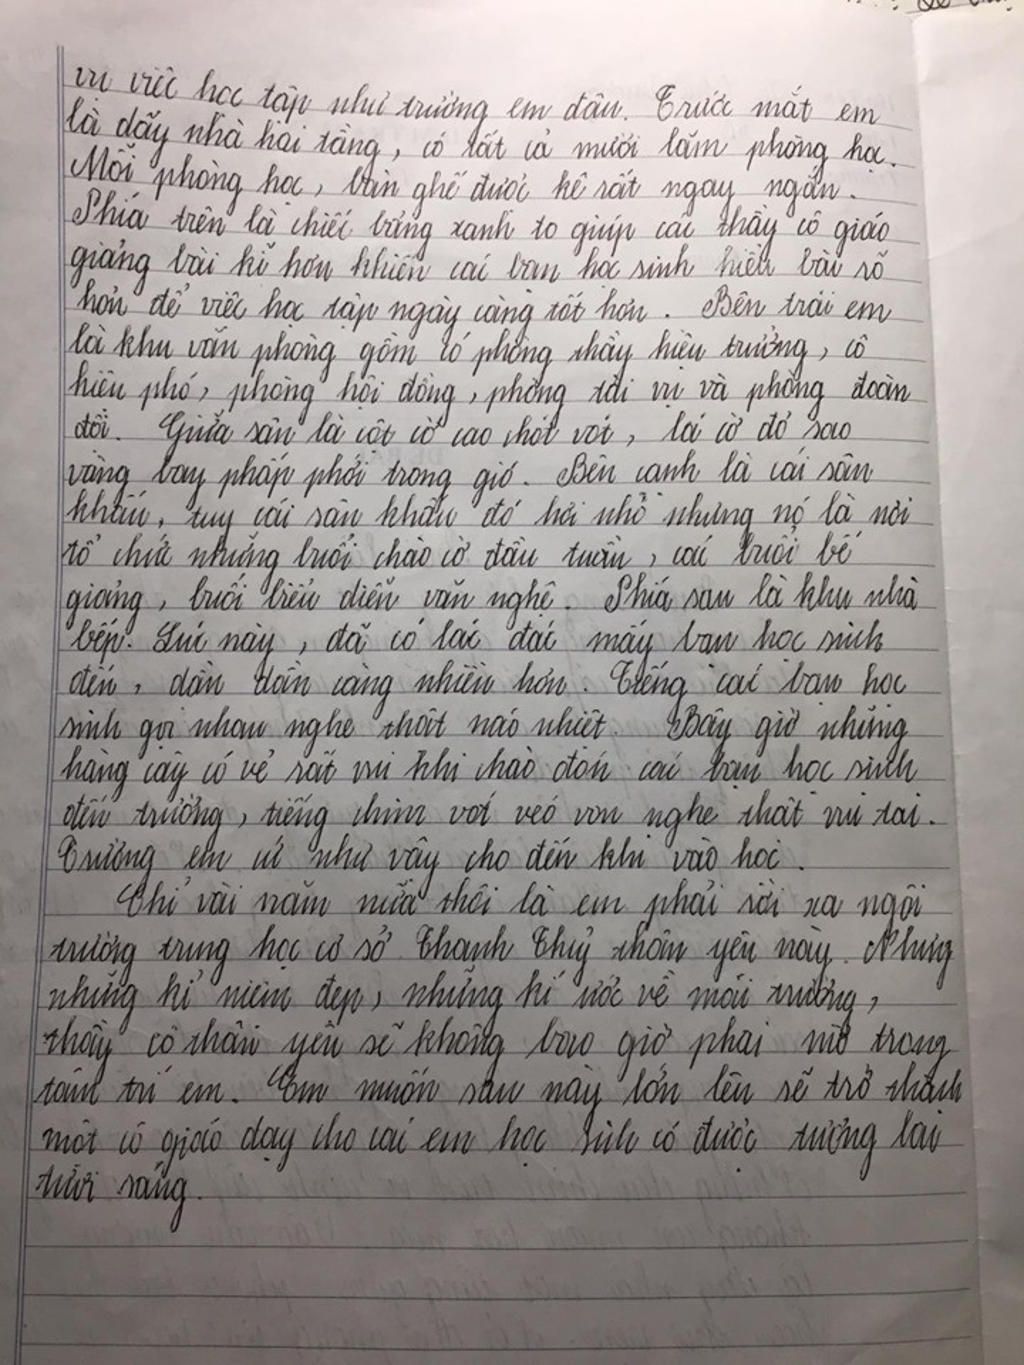 vụ việc học tập như trường em đâu. Trước mắt em
là dãy nhà hai tầng, có tất cả mười lăm phòng học.
Mỗi phòng học, bàn ghế được kê rất ngay ngắn.
Phía trên là chiếc bảng xanh to giúp các thầy cô giáo
giảng bài kĩ hơn khiến các bạn học sinh hiểu bài rõ
hơn để việc học tập ngày càng tốt hơn. Bên trái em
là khu văn phòng gồm có phòng thầy hiệu trưởng, cô
hiệu phó, phòng hội đồng, phòng tài vụ và phòng đoàn
đội. Giữa sân là cột cờ cao chót vót, lá cờ đỏ sao
vàng bay phấp phới trong gió. Bên cạnh là cái sân
khấu, tuy cái sân khấu đó hơi nhỏ nhưng nó là nơi
tổ chức những buổi chào cờ đầu tuần, các buổi bế
giảng, buổi biểu diễn văn nghệ. Phía sau là khu nhà
bếp. Lúc này, đã có lác đác mấy bạn học sinh
đến, dần dần càng nhiều hơn. Tiếng các bạn học
sinh gọi nhau nghe thật náo nhiệt. Bây giờ những
hàng cây có vẻ rất vui khi chào đón các bạn học sinh
đến trường, tiếng chim vót véo von nghe thật vui tai.
Trường em cứ như vậy cho đến khi vào học.
Chỉ vài năm nữa thôi là em phải rời xa ngôi
trường trung học cơ sở Thanh Thuỷ thân yêu này. Nhưng
những kỉ niệm đẹp, những kí ước về mái trường,
thầy cô thân yêu sẽ không bao giờ phai mờ trong
tâm trí em. Em muốn sau này lớn lên sẽ trở thành
một cô giáo dạy cho các em học sinh có được tương lai
tươi sáng.